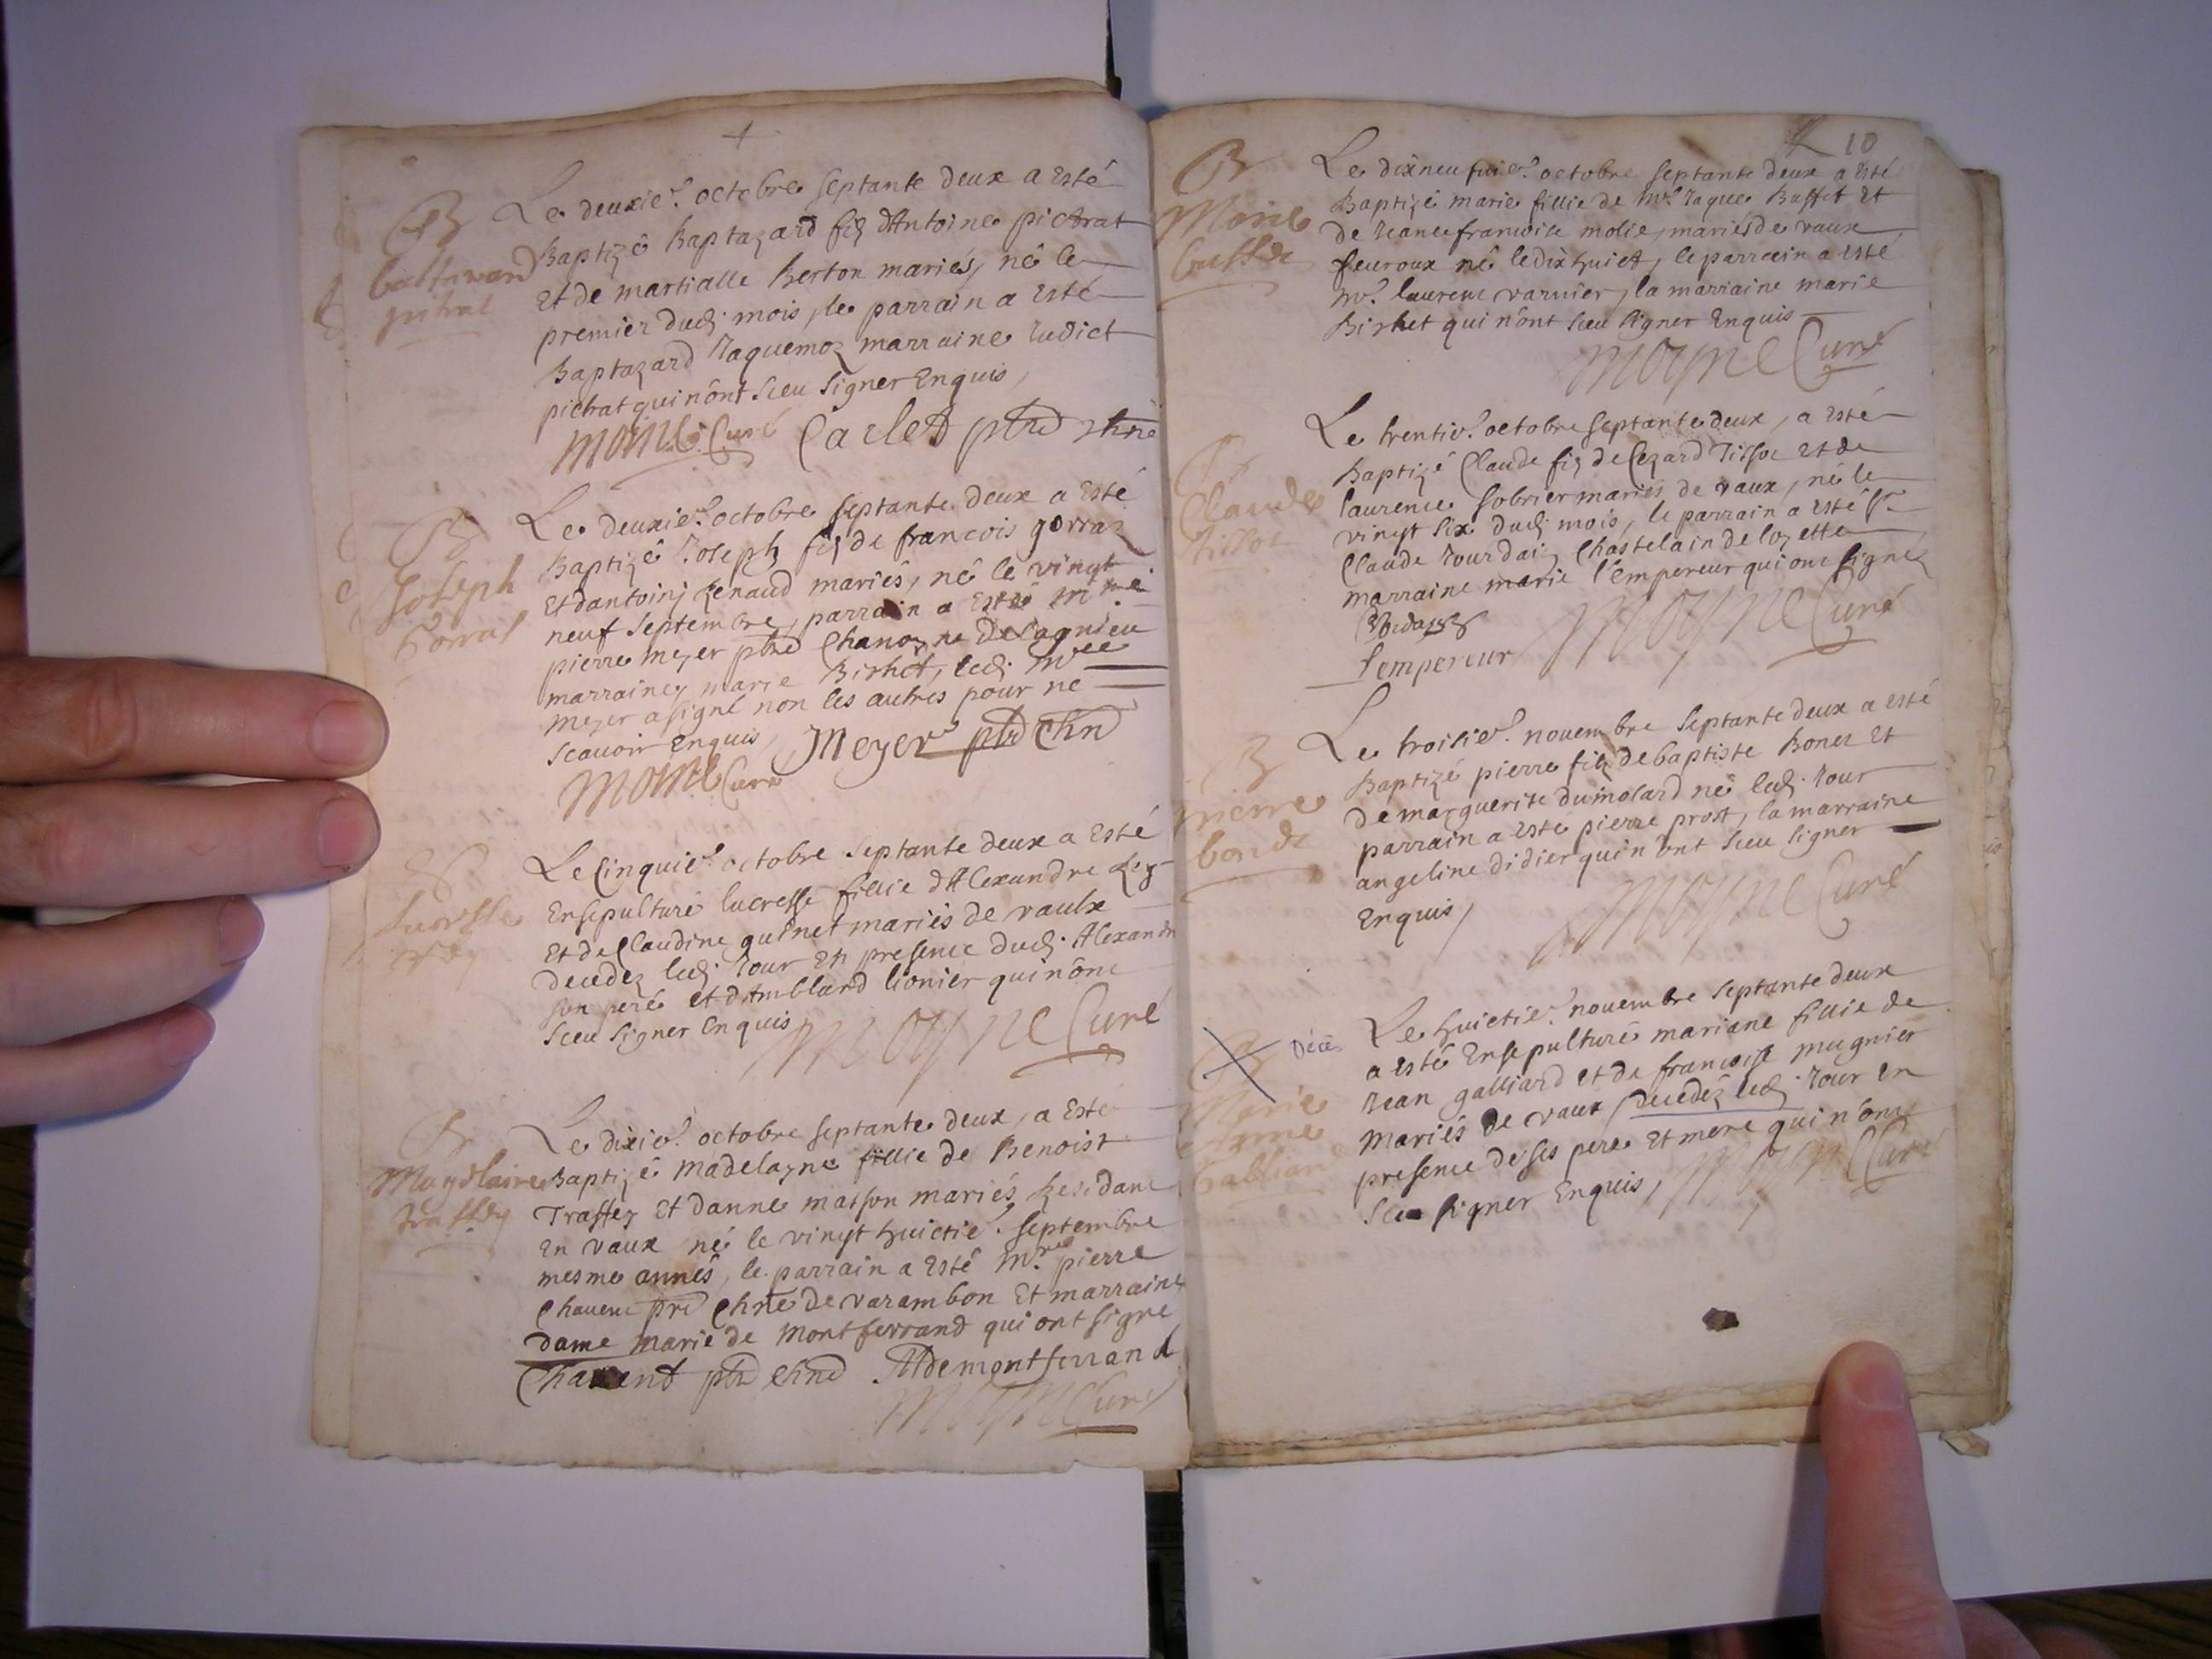 B
balthazard
pictrat
Le deuxie.^e octobre septante deux a esté
Baptizé Baptazard fiz d'Antoine pictrat
et de martialle Berton mariés, né le
premier dud. mois, le parrain a esté
Baptazard Jaquemoz marraine Judict
pictrat qui n'ont sceu signer enquis,
Moyne Curé Carlet pbr chne
B
Joseph
Le deuxie.^e octobre septante deux a esté
Baptizé Joseph fiz de francois gorraz
et dantoinj Renaud mariés, né le vingt
neuf septembre, parrain a esté m.re
pierre meyer pbr Chanoyne de Lagnieu
marrainez marie Bishet, led. m.re
meyer a signé non les autres pour ne
scavoir enquis, Meyer pbr Chn
Moyne Curé
S
Lucresse
rey
Le Cinquie.^e octobre septante deux a esté
Ensepulturé lucresse fillie d'Alexandre Rey
et de Claudine quinet mariés de vaulx
decedez led. jour en presence dud. Alexandre
son pere et d'Amblard lionier qui n'ont
sceu signer enquis, Moyne Curé
B
Magdlaine
traffey
Le dixie.^e octobre septante deux, a esté
Baptizé madelayne fillie de Benoist
Traffey et danne matson mariés, Residant
en vaux né le vingt huictie.^e septembre
mesme année, le parrain a esté m.re pierre
Chavent pre Chne de varambon et marraine
dame marie de montferrand qui ont signé
Chavent pbr chne Mdemontferrand
Moyne Curé
10
B
Marie
buffde
Le dixneufuie.^e octobre septante deux a esté
Baptizé marie fillie de m.^e Jaque Buffet et
de Jeanefrancoise molie, mariés de vaux
feuroux né le dix huict, le parrain a esté
m.^e laurent varnier, la marraine marie
Bishet qui n'ont sceu signer enquis
Moyne Curé
B
Claude
tissot
Le trentie.^e octobre septante deux, a esté
Baptizé Claude fiz de Cezard Tissot et de
laurence sobrier mariés de vaux, né le
vingt six dud. mois, le parrain a esté s.^r
Claude Jourdain Chastelain de lozette
marraine marie l'empereur qui ont signéz
Moyne Curé
lempereur
B
pierre
bonde
Le troisie.^e novembre septante deux a esté
Baptizé pierre fiz de baptiste Bonez et
de marguerite dumolard né led. jour
parrain a esté pierre prost, la marraine
angeline didier qui n'ont sceu signer
enquis, Moyne Curé
Décès
Marie
Anne
Galliard
Le huictie.^e novembre septante deux
a esté ensepulturé mariane fillie de
Jean galliard et de francoise mugnier
mariés de vaux, decedéz led. jour en
presence de ses pere et mere qui n'ont
sceu signer enquis, Moyne Curé